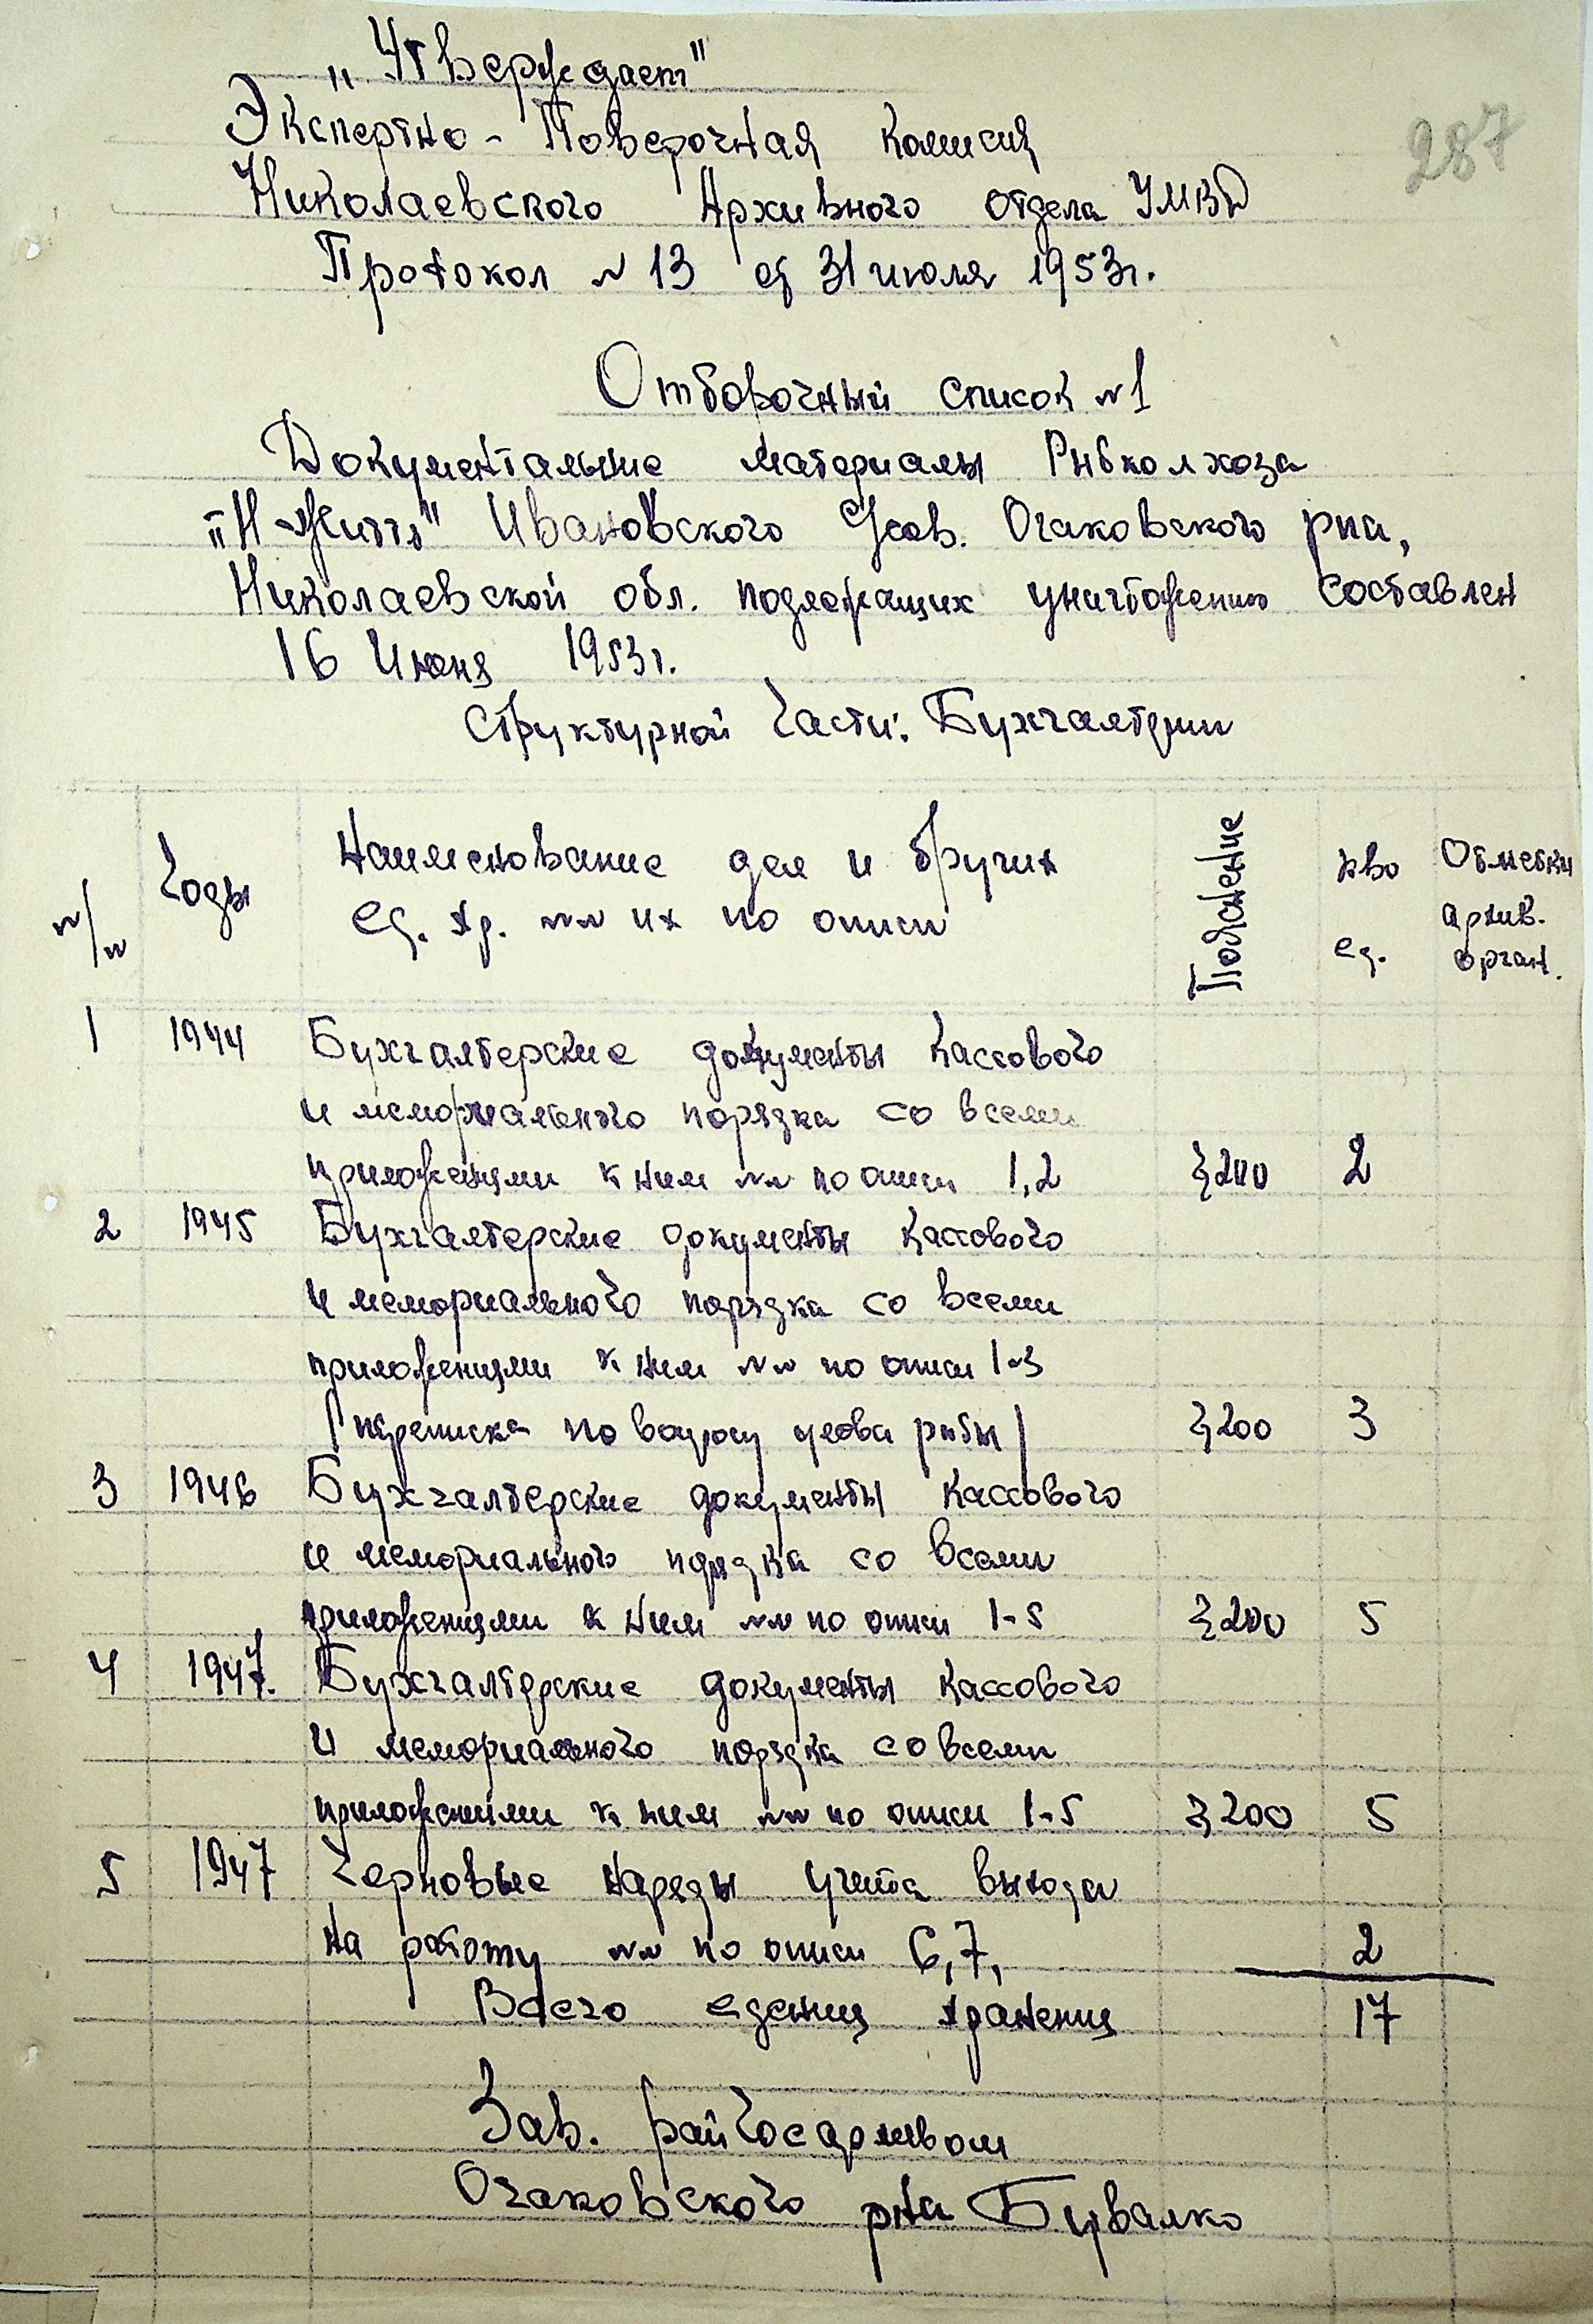 „Утверждает"
Экспертно-Поверочная Комисия
287
Николаевского Архивного отдела УМВД
Протокол № 13 от 31 июля 1953г.
Отборочный список №1
Документальные материалы Рыбколхоза
"Н-Життя" Ивановского Усов. Очаковского рна,
Николаевской обл. подлежащих уничтожению составлен
16 Июня 1953г.
Структурной Части: Бухгалтерии
№/№ Годы Наименование дел и других Пояснение кво Отметки
ед. хр. №№ их по описи ед. архив.
орган.
1 1944 Бухгалтерские документы кассового
и мемориального порядка со всеми
приложениями к ним №№ по описи 1,2 §200 2
2 1945 Бухгалтерские документы кассового
и мемориального порядка со всеми
приложениями к ним №№ по описи 1-3
/переписка по вопросу улова рыбы/ §200 3
3 1946 Бухгалтерские документы кассового
и мемориального порядка со всеми
приложениями к ним №№ по описи 1-5 §200 5
4 1947. Бухгалтерские документы кассового
и мемориального порядка со всеми
приложениями к ним №№ по описи 1-5 §200 5
5 1947 Черновые наряды учета выхода
на работу №№ по описи 6,7, 2
Всего едениц хранения 17
Зав. райгосархивом
Очаковского рна Бувалко